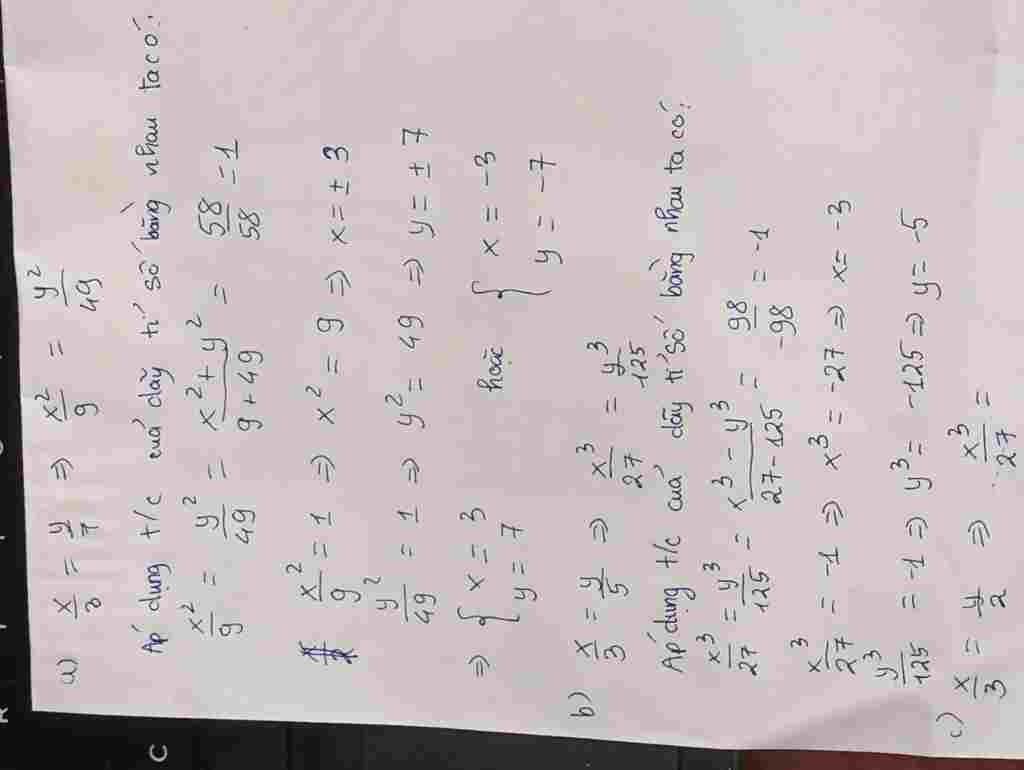 a) x/3 = y/7 ⇒ x²/9 = y²/49
Áp dụng t/c của dãy tỉ số bằng nhau ta có:
x²/9 = y²/49 = (x² + y²)/(9 + 49) = 58/58 = 1
x²/9 = 1 ⇒ x² = 9 ⇒ x = ± 3
y²/49 = 1 ⇒ y² = 49 ⇒ y = ± 7
⇒ { x = 3 hoặc { x = -3
y = 7 y = -7
b) x/3 = y/5 ⇒ x³/27 = y³/125
Áp dụng t/c của dãy tỉ số bằng nhau ta có:
x³/27 = y³/125 = (x³ - y³)/(27 - 125) = 98/-98 = -1
x³/27 = -1 ⇒ x³ = -27 ⇒ x = -3
y³/125 = -1 ⇒ y³ = -125 ⇒ y = -5
c) x/3 = y/2 ⇒ x³/27 =
C